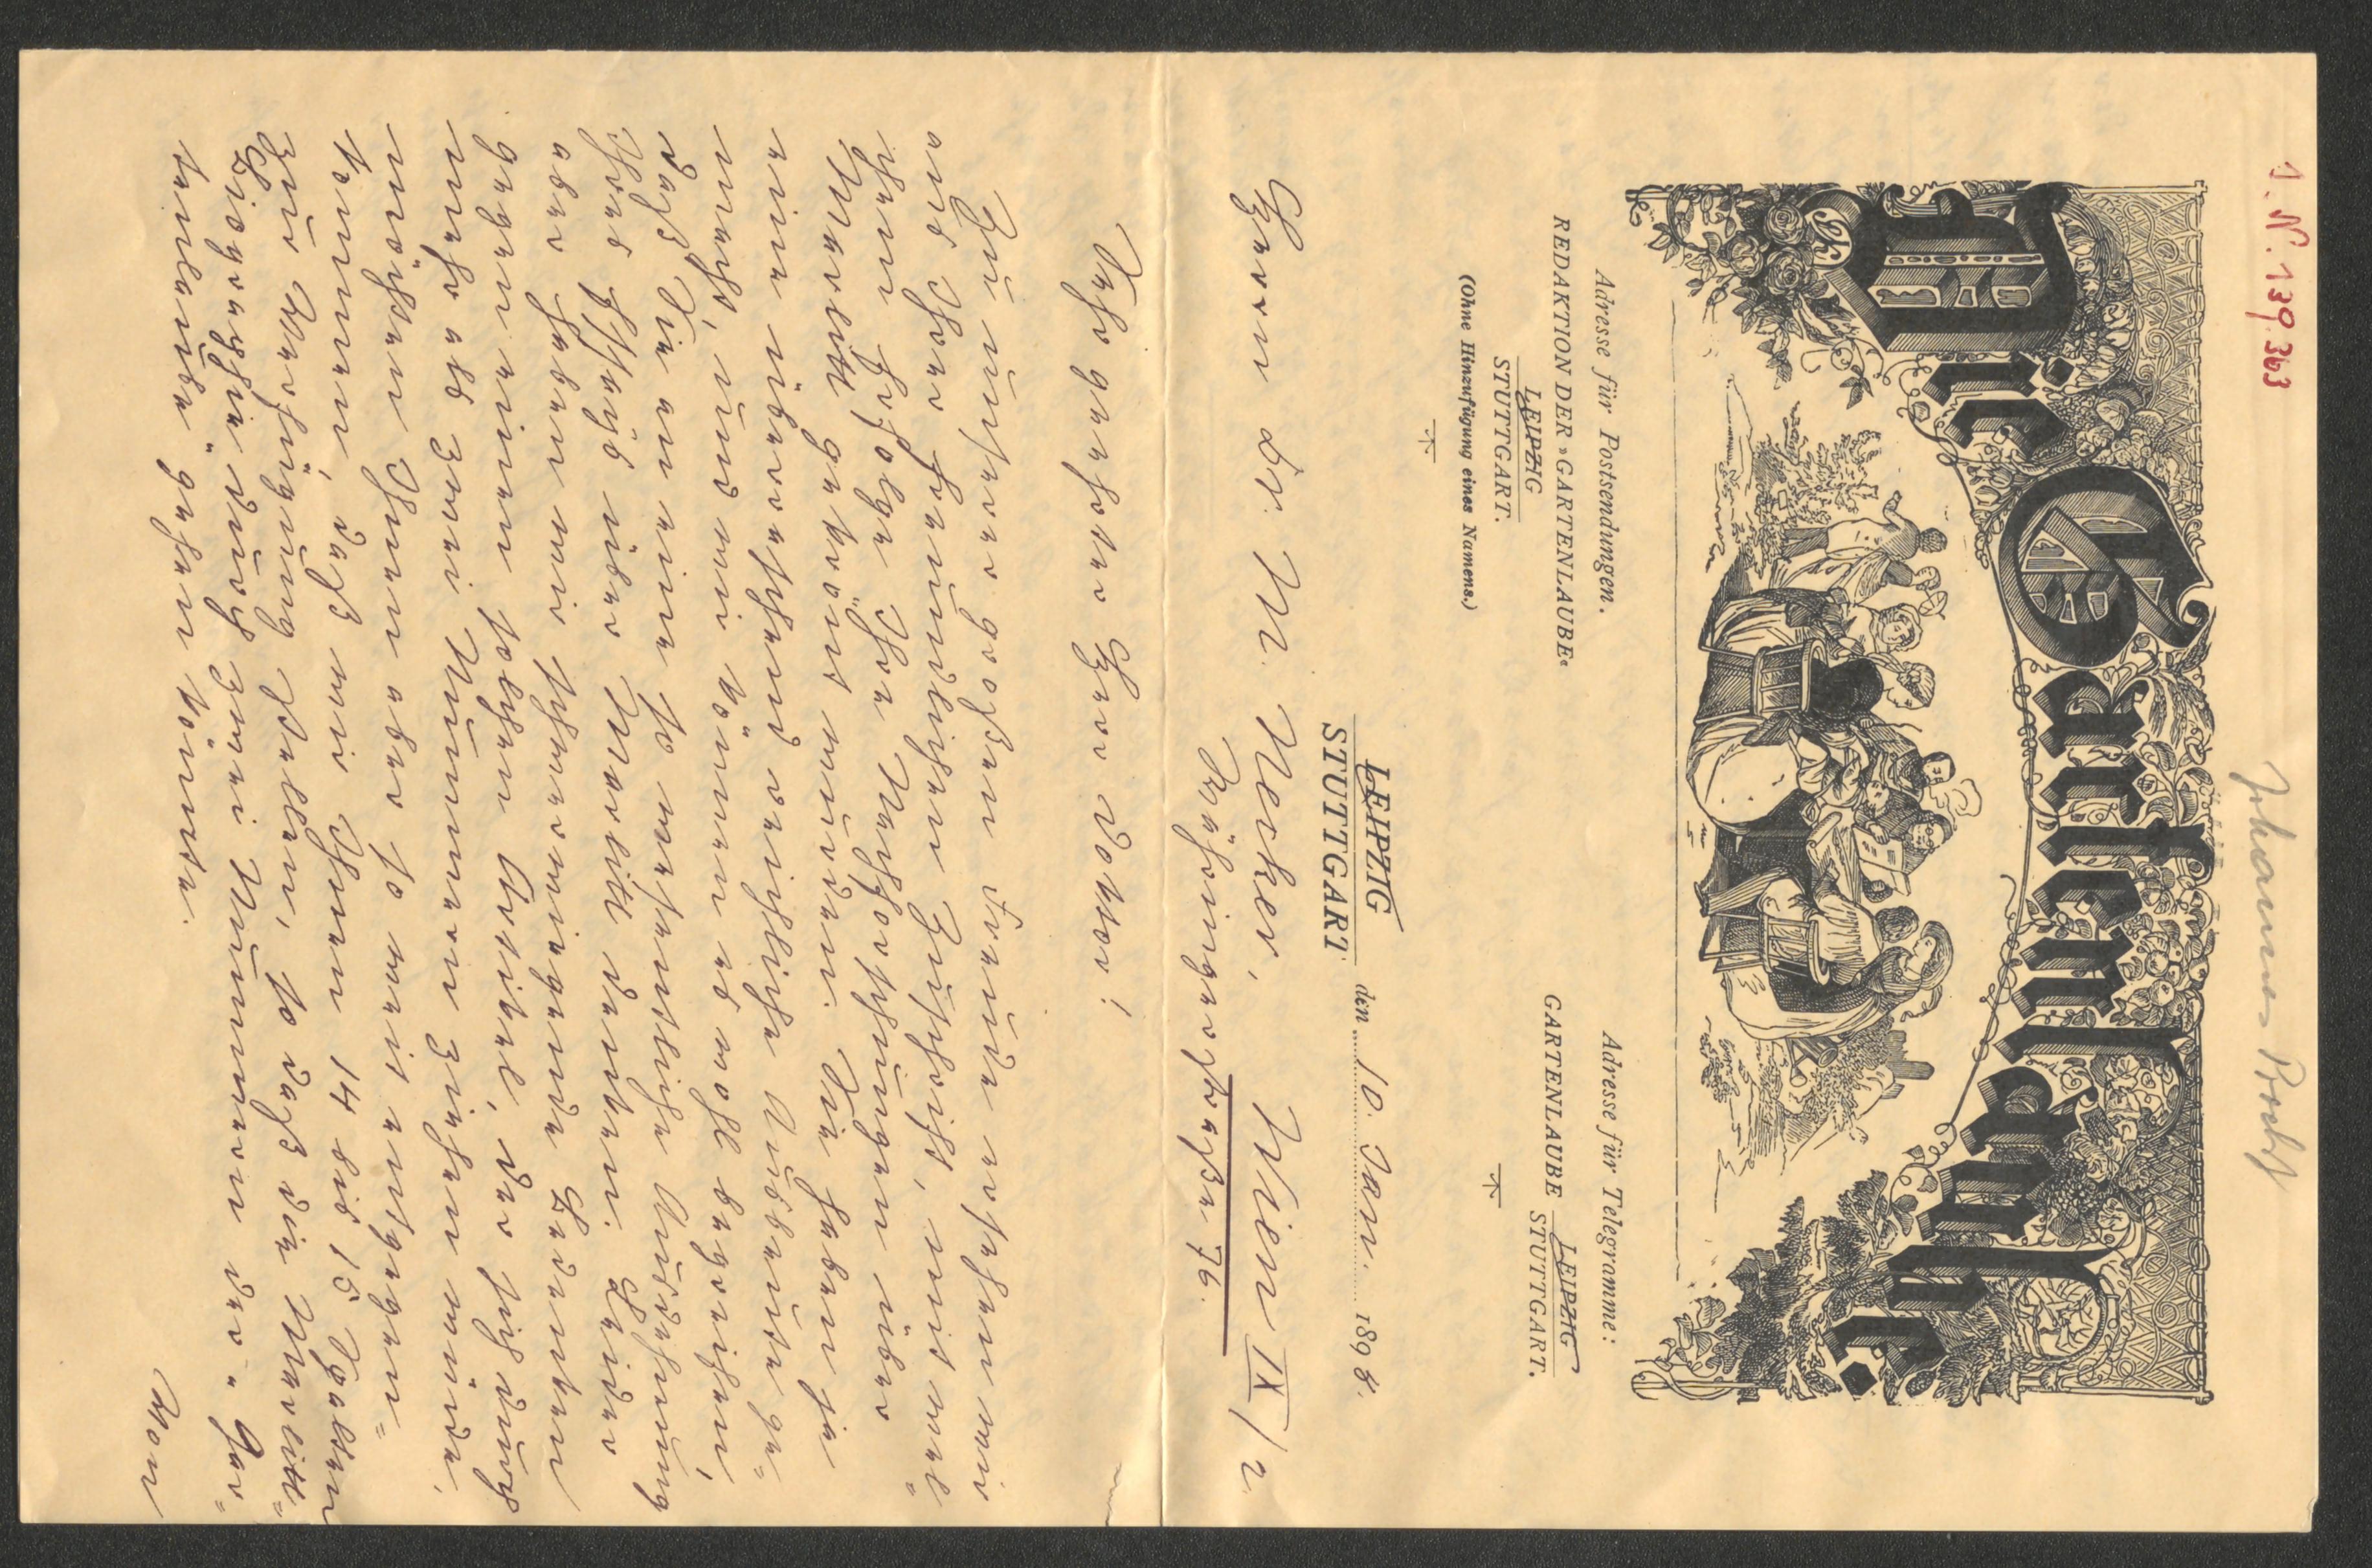 J. N. 139.363
Johannes Proelß
Die Gartenlaube
Adresse für Postsendungen.
REDAKTION DER »GARTENLAUBE«
LEIPZIG
STUTTGART.
(Ohne Hinzufügung eines Namens.)
Adresse für Telegramme:
GARTENLAUBE LEIPZIG
STUTTGART.
LEIPZIG
STUTTGART den 10. Jan. 1898.
Herrn Dr. M. Necker, Wien IX/2
Währingerstraße 76.
Sehr geehrter Herr Doktor!
Zu unserer großen Freude ersehen wir
aus Ihrer freundlichen Zuschrift, mit wel-
chem Erfolge Ihre Nachforschungen über
Marlitt gekrönt wurden. Sie haben ja
eine überraschend reichliche Ausbeute ge-
macht, und wir können es wohl begreifen,
daß Sie an eine so wesentliche Ausdehnung
Ihres Essays über Marlitt denken. Leider
aber haben wir schwerwiegende Bedenken
gegen einen solchen Artikel, der sich durch
mehr als zwei Nummern ziehen würde,
möchten Ihnen aber so weit entgegen-
kommen, daß wir Ihnen 14 bis 15 Spalten
zur Verfügung stellen, so daß die Marlitt-
Biographie durch zwei Nummern der „Gar-
tenlaube" gehen könnte.
Wenn